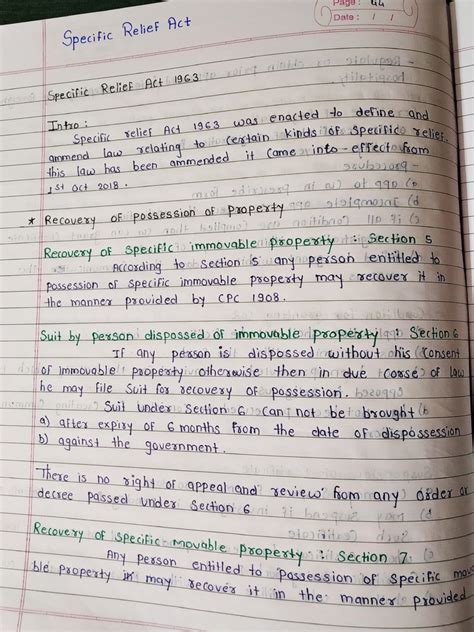 Page: 44
Date: / /
Specific Relief Act
Specific Relief Act 1963
Intro:
Specific relief Act 1963 was enacted to define and
ammend law relating to certain kinds of specific relief.
this law has been ammended it came into effect from
1st Oct 2018.
* Recovery of possession of Property
Recovery of Specific immovable property : Section 5
According to section 5 any person entitled to
possession of specific immovable property may recover it in
the manner provided by CPC 1908.
Suit by person dispossed of immovable property : Section 6
If any person is dispossed without his consent
of immovable property otherwise then in due corse of law
he may file suit for recovery of possession.
Suit under section 6 can not be brought
a) after expiry of 6 months from the date of dispossession
b) against the government.
There is no right of appeal and review from any order or
decree passed under section 6
Recovery of specific movable property : Section 7
Any person entitled to possession of specific mova
ble property in may recover it in the manner provided